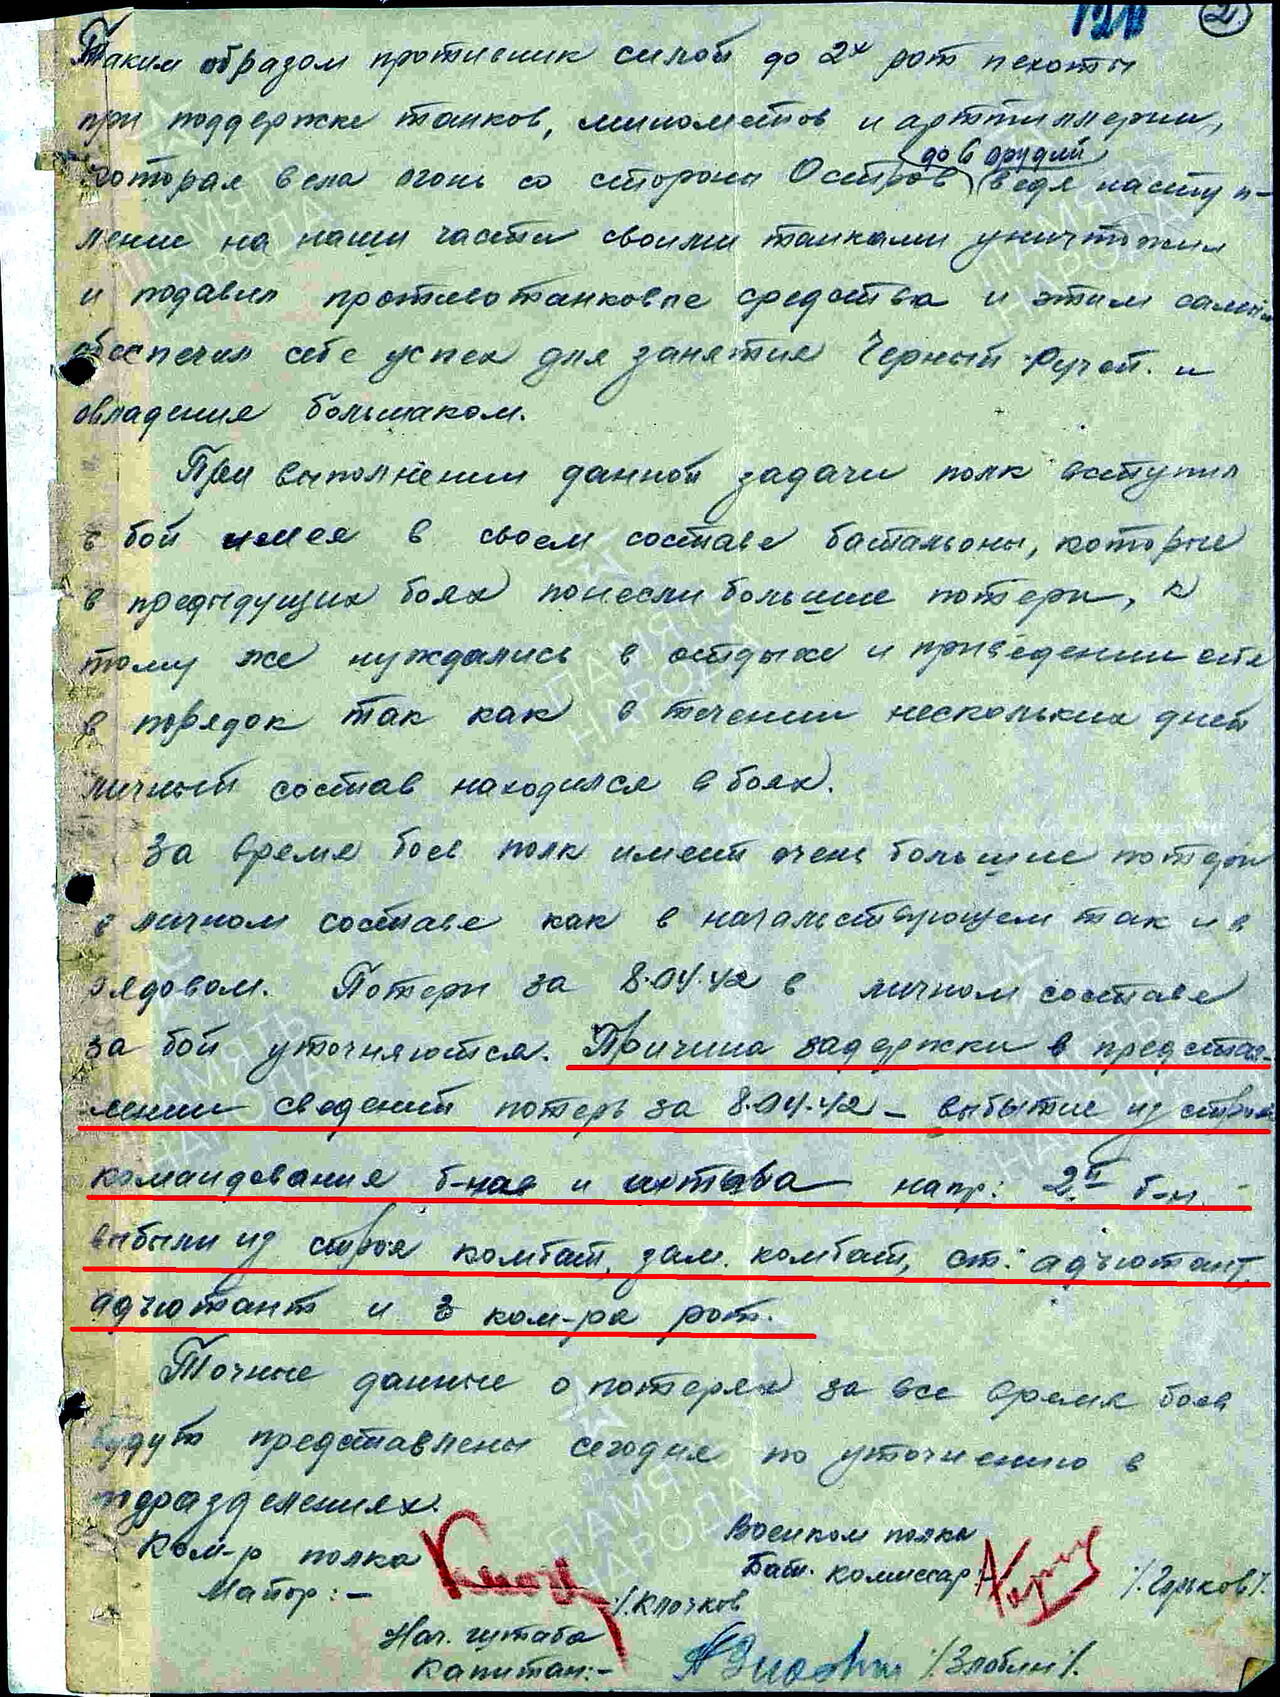 2
Таким образом противник силой до 2х рот пехоты
при поддержке танков, минометов и арттиллерии,
до 6 орудий
которая вела огонь со стороны Остров ведя наступ-
ление на наши части своими танками уничтожил
и подавил противотанковые средства и этим самым
обеспечил себе успех для занятия Черный Ручей и
овладения большаком.
При выполнении данной задачи полк вступил
в бой имея в своем составе батальоны, которые
в предыдущих боях понесли большие потери, к
тому же нуждались в отдыхе и приведении себя
в порядок так как в течении нескольких дней
личный состав находился в боях.
За время боев полк имеет очень большие потери
в личном составе как в начальствующем так и в
рядовом. Потери за 8.04.42 в личном составе
за бой уточняются. Причина задержки в представ-
лении сведений потерь за 8.04.42 – выбытие из строя
командования б-нов и штаба напр: 2й б-н. -
выбыли из строя комбат, зам. комбат, ст. адъютант,
адъютант и 3 ком-ра рот.
Точные данные о потерях за все время боев
будут представлены сегодня по уточнению в
подразделениях.
Ком-р полка
Майор:-
/. Клочков
Военком полка
Бат. комиссар
/. Гурьков /.
Нач. штаба
Капитан:-
/. Злобин /.
ПАМЯТЬ
НАРОДА
ПАМЯТЬ
НАРОДА
ПАМЯТЬ
НАРОДА
ПАМЯТЬ
НАРОДА
ПАМЯТЬ
НАРОДА
ПАМЯТЬ
НАРОДА